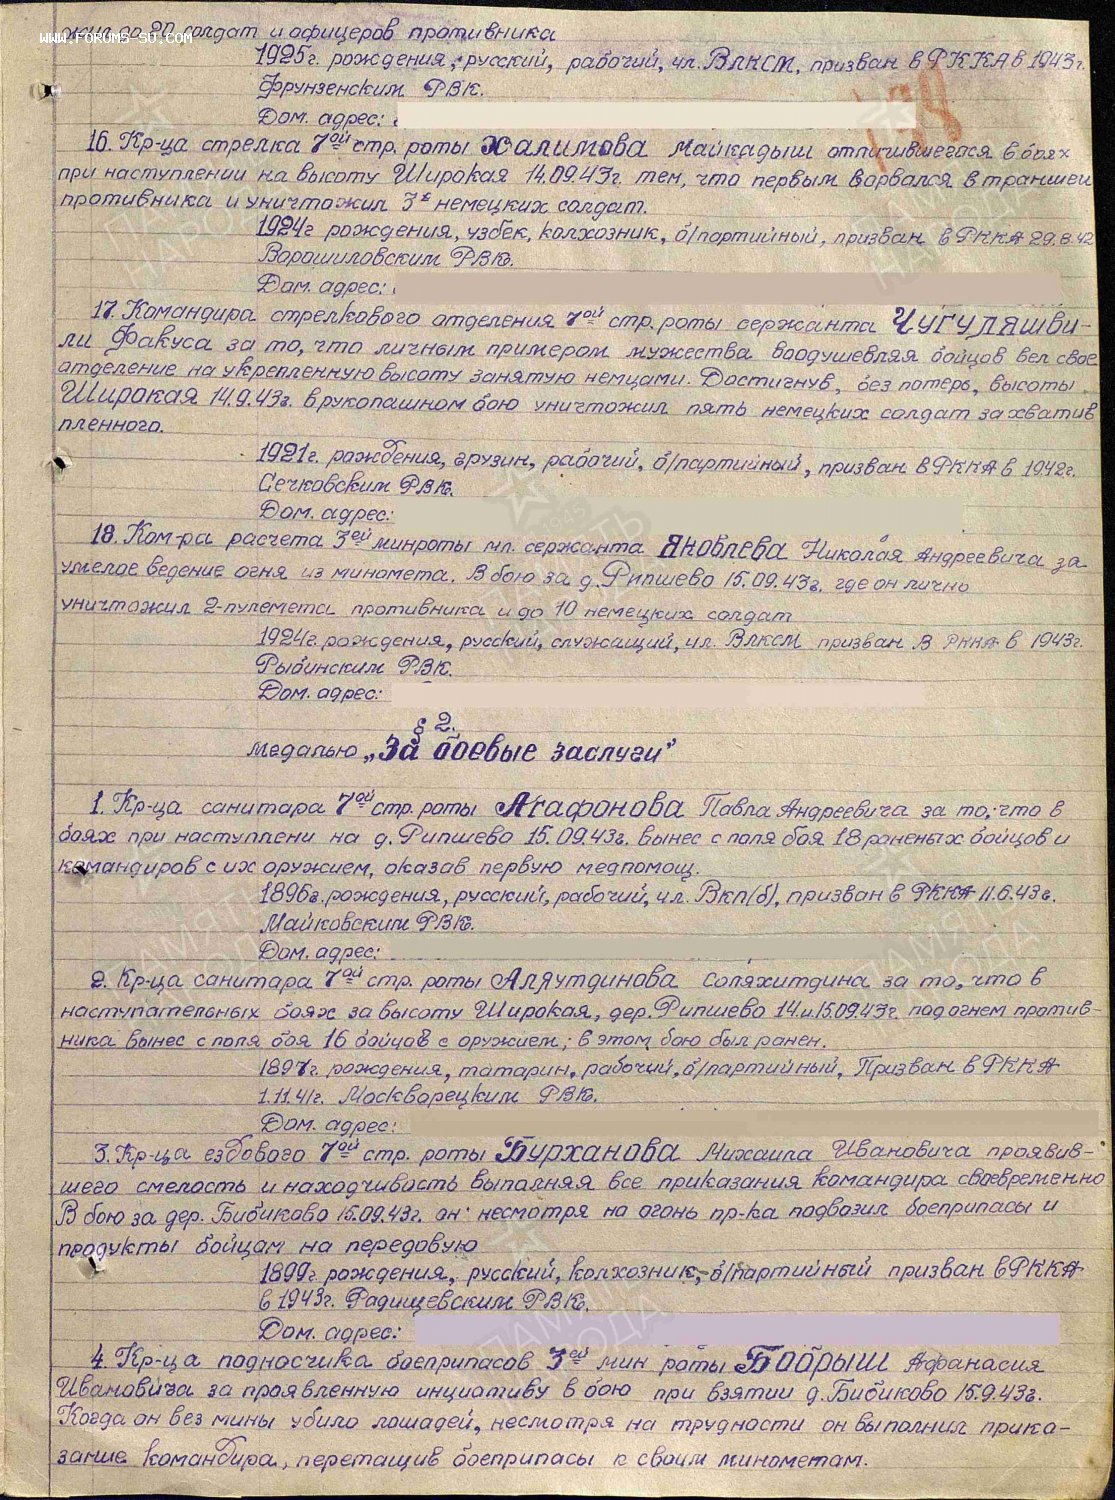 до 20 солдат и офицеров противника
WWW.FORUMS-SU.COM
1925г. рождения, русский, рабочий, чл. Влксм, призван в РККА в 1943г.
Фрунзенским РВК.
Дом. адрес:
16. Кр-ца стрелка 7ой стр. роты Халимова Майкадыш отличившегося в боях
при наступлении на высоту Широкая 14.09.43г. тем, что первым ворвался в траншеи
противника и уничтожил 3х немецких солдат.
1924г рождения, узбек, колхозник, б/партийный, призван в РККА 29.8.42
Ворошиловским РВК.
Дом. адрес:
17. Командира стрелкового отделения 7ой стр. роты сержанта Чугуляшви-
ли Факуса за то, что личным примером мужества воодушевляя бойцов вел свое
отделение на укрепленную высоту занятую немцами. Достигнув, без потерь, высоты
Широкая 14.9.43г. в рукопашном бою уничтожил пять немецких солдат захватив
пленного.
1921г. рождения, грузин, рабочий, б/партийный, призван в РККА в 1942г.
Сечковским РВК.
Дом. адрес:
18. Ком-ра расчета 3ей минроты мл. сержанта Яковлева Николая Андреевича за
умелое ведение огня из миномета. В бою за д. Рипшево 15.09.43г. где он лично
уничтожил 2-пулемета противника и до 10 немецких солдат
1924г. рождения, русский, служащий, чл. Влксм призван в РККА в 1943г.
Рыбинским РВК.
Дом. адрес:
§ 2.
Медалью „За боевые заслуги"
1. Кр-ца санитара 7ой стр. роты Агафонова Павла Андреевича за то, что в
боях при наступлени на д. Рипшево 15.09.43г. вынес с поля боя 18 раненых бойцов и
командиров с их оружием, оказав первую медпомощ.
1896г. рождения, русский, рабочий, чл. Вкп(б), призван в РККА 11.6.43г.
Майковским РВК.
Дом. адрес:
2. Кр-ца санитара 7ой стр. роты Аляутдинова Соляхитдина за то, что в
наступательных боях за высоту Широкая, дер. Рипшево 14.и.15.09.43г. под огнем против-
ника вынес с поля боя 16 бойцов с оружием, в этом бою был ранен.
1897г. рождения, татарин, рабочий, б/партийный, Призван в РККА
1.11.41г. Москворецким РВК.
Дом. адрес:
3. Кр-ца ездового 7ой стр. роты Бурханова Михаила Ивановича проявив-
шего смелость и находчивость выполняя все приказания командира своевременно
В бою за дер. Бибиково 15.09.43г. он несмотря на огонь пр-ка подвозил боеприпасы и
продукты бойцам на передовую
1899г. рождения, русский, колхозник, б/партийный призван в РККА
в 1943г. Радищевским РВК.
Дом. адрес:
4. Кр-ца подносчика боеприпасов 3ей мин роты Бобрыш Афанасия
Ивановича за проявленную инциативу в бою при взятии д. Бибиково 15.9.43г.
Когда он вез мины убило лошадей, несмотря на трудности он выполнил прика-
зание командира, перетащив боеприпасы к своим минометам.